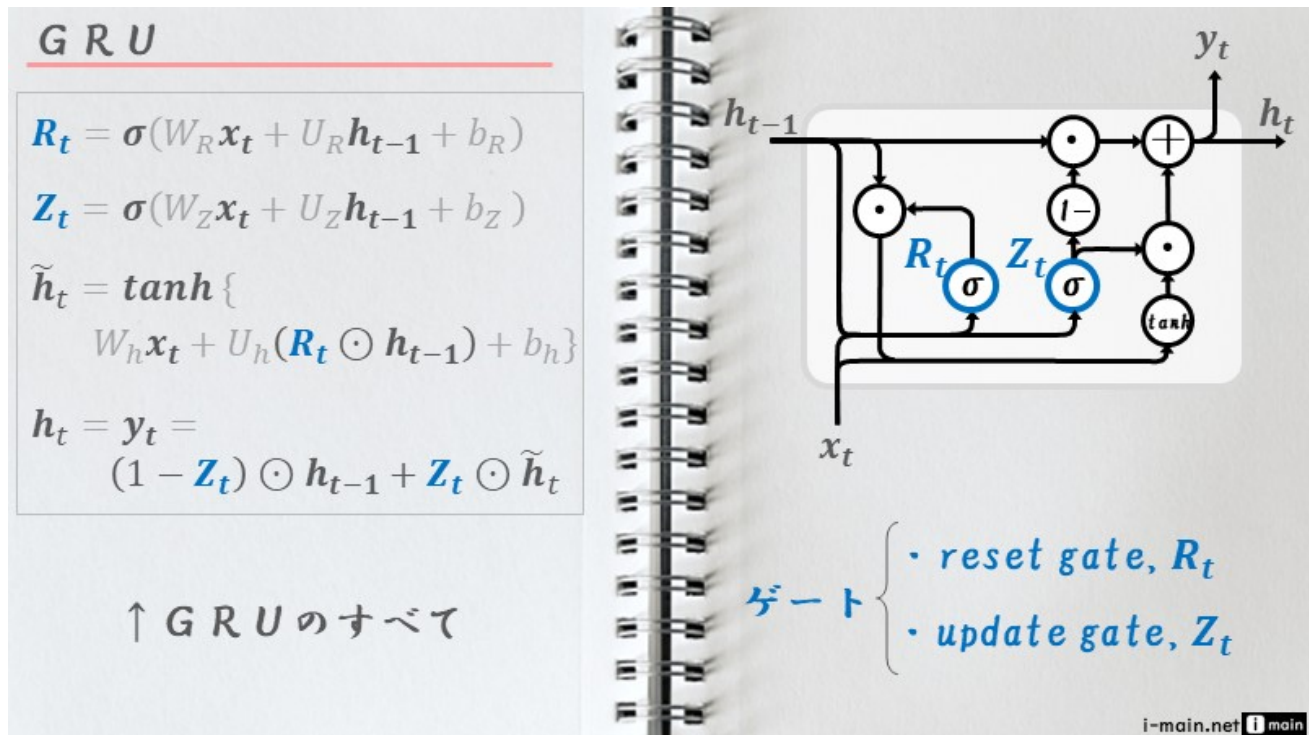 GRU
R_t = σ(W_R x_t + U_R h_{t−1} + b_R)
Z_t = σ(W_Z x_t + U_Z h_{t−1} + b_Z)
h̃_t = tanh {
W_h x_t + U_h(R_t ⊙ h_{t−1}) + b_h}
h_t = y_t =
(1 − Z_t) ⊙ h_{t−1} + Z_t ⊙ h̃_t
↑GRUのすべて
y_t
h_{t−1}
h_t
+
1−
R_t
Z_t
σ
σ
tanh
x_t
ゲート
・reset gate, R_t
・update gate, Z_t
i-main.net i main